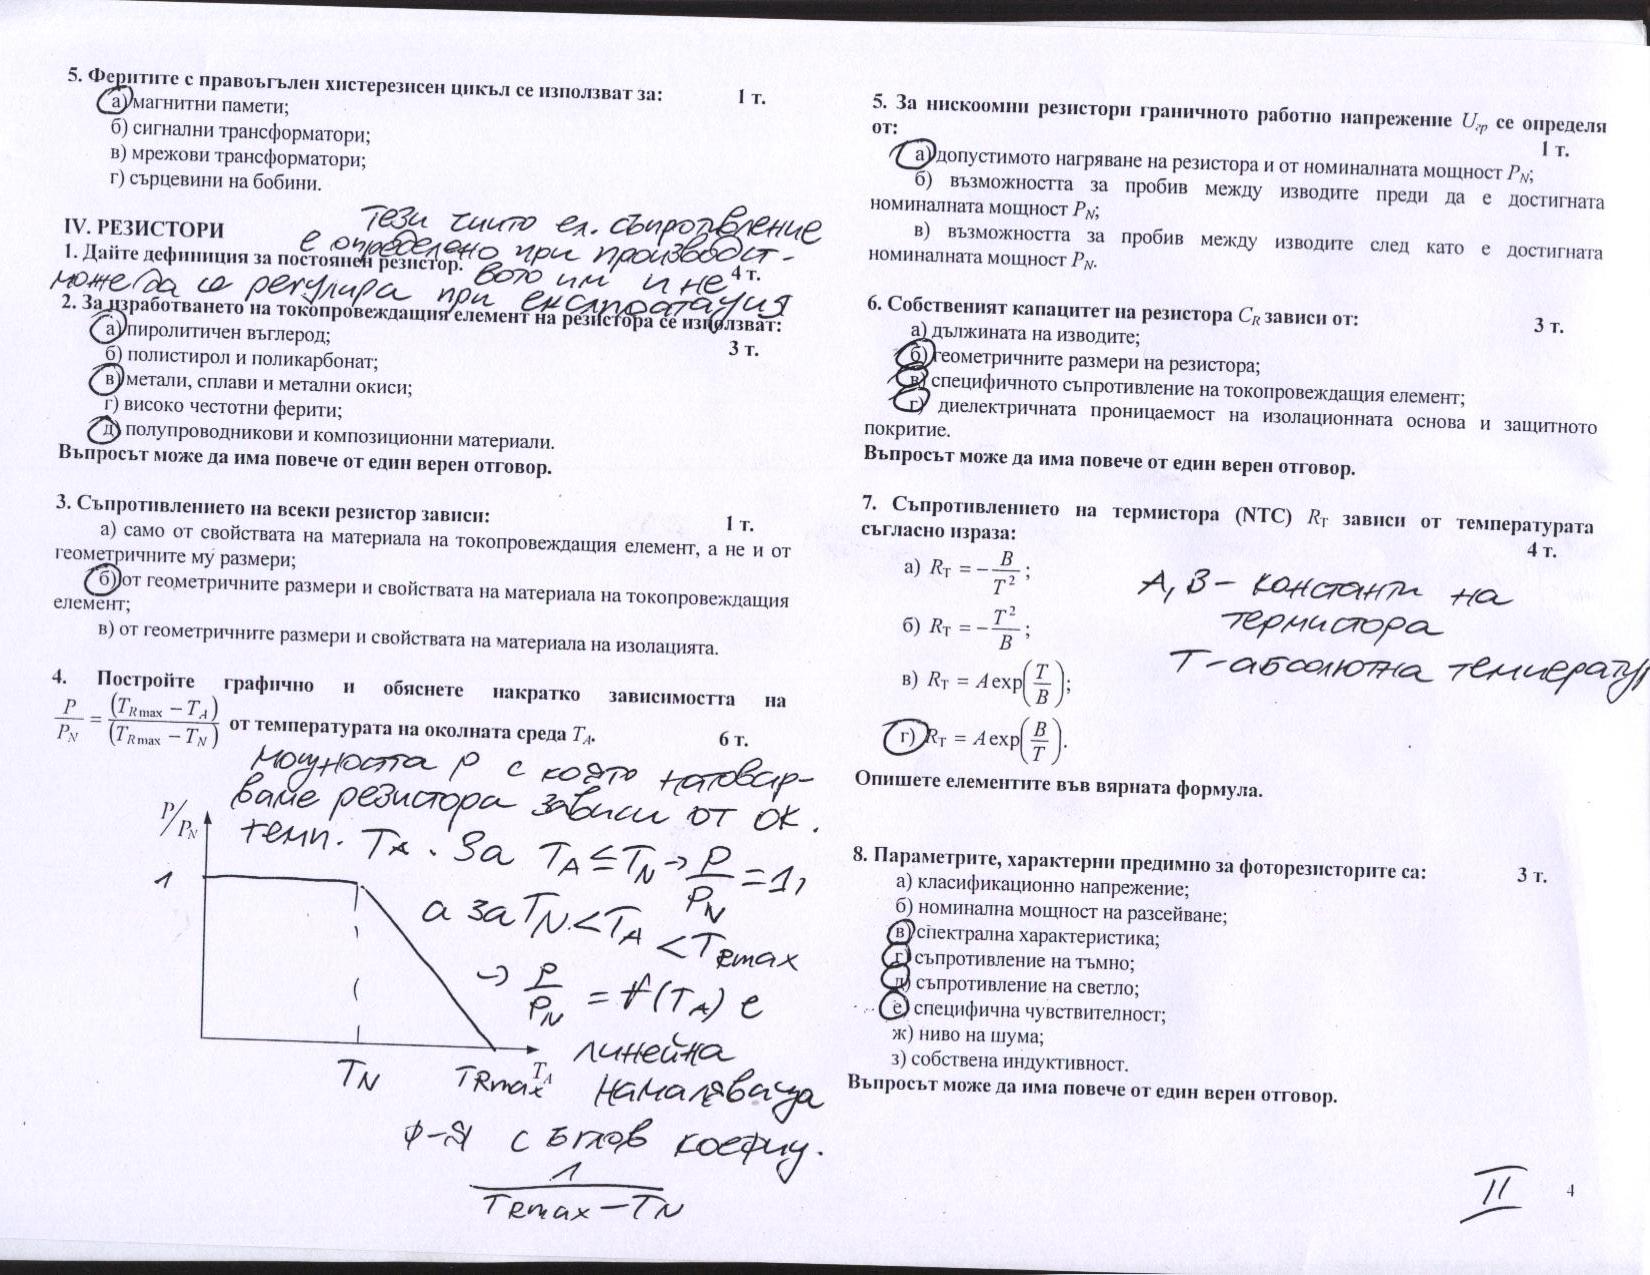 5. Феритите с правоъгълен хистерезисен цикъл се използват за: 1 т.
а) магнитни памети;
б) сигнални трансформатори;
в) мрежови трансформатори;
г) сърцевини на бобини.
IV. РЕЗИСТОРИ
Тези чиито ел. съпротвление
е определено при производст-
1. Дайте дефиниция за постоянен резистор. 4 т.
вото им и не
може да се регулира при експлоатация
2. За изработването на токопровеждащия елемент на резистора се използват:
3 т.
а) пиролитичен въглерод;
б) полистирол и поликарбонат;
в) метали, сплави и метални окиси;
г) високо честотни ферити;
д) полупроводникови и композиционни материали.
Въпросът може да има повече от един верен отговор.
3. Съпротивлението на всеки резистор зависи: 1 т.
а) само от свойствата на материала на токопровеждащия елемент, а не и от
геометричните му размери;
б) от геометричните размери и свойствата на материала на токопровеждащия
елемент;
в) от геометричните размери и свойствата на материала на изолацията.
4. Постройте графично и обяснете накратко зависимостта на
P/P_N = (T_Rmax − T_A)/(T_Rmax − T_N) от температурата на околната среда T_A. 6 т.
Мощността P с която натовар-
ваме резистора зависи от ок.
темп. T_A. За T_A ≤ T_N → P/P_N = 1,
а за T_N < T_A < T_Rmax
→ P/P_N = f(T_A) е
линейна
намаляваща
ф-я с ъглов коефиц.
1/(T_Rmax − T_N)
P/P_N
1
T_N T_Rmax T_A
5. За нискоомни резистори граничното работно напрежение U_гр се определя
от: 1 т.
а) допустимото нагряване на резистора и от номиналната мощност P_N;
б) възможността за пробив между изводите преди да е достигната
номиналната мощност P_N;
в) възможността за пробив между изводите след като е достигната
номиналната мощност P_N.
6. Собственият капацитет на резистора C_R зависи от: 3 т.
а) дължината на изводите;
б) геометричните размери на резистора;
в) специфичното съпротивление на токопровеждащия елемент;
г) диелектричната проницаемост на изолационната основа и защитното
покритие.
Въпросът може да има повече от един верен отговор.
7. Съпротивлението на термистора (NTC) R_T зависи от температурата
съгласно израза: 4 т.
а) R_T = −B/T²;
б) R_T = −T²/B;
в) R_T = A exp(T/B);
г) R_T = A exp(B/T).
A, B – константи на
термистора
T – абсолютна температур
Опишете елементите във вярната формула.
8. Параметрите, характерни предимно за фоторезисторите са: 3 т.
а) класификационно напрежение;
б) номинална мощност на разсейване;
в) спектрална характеристика;
г) съпротивление на тъмно;
д) съпротивление на светло;
е) специфична чувствителност;
ж) ниво на шума;
з) собствена индуктивност.
Въпросът може да има повече от един верен отговор.
II
4